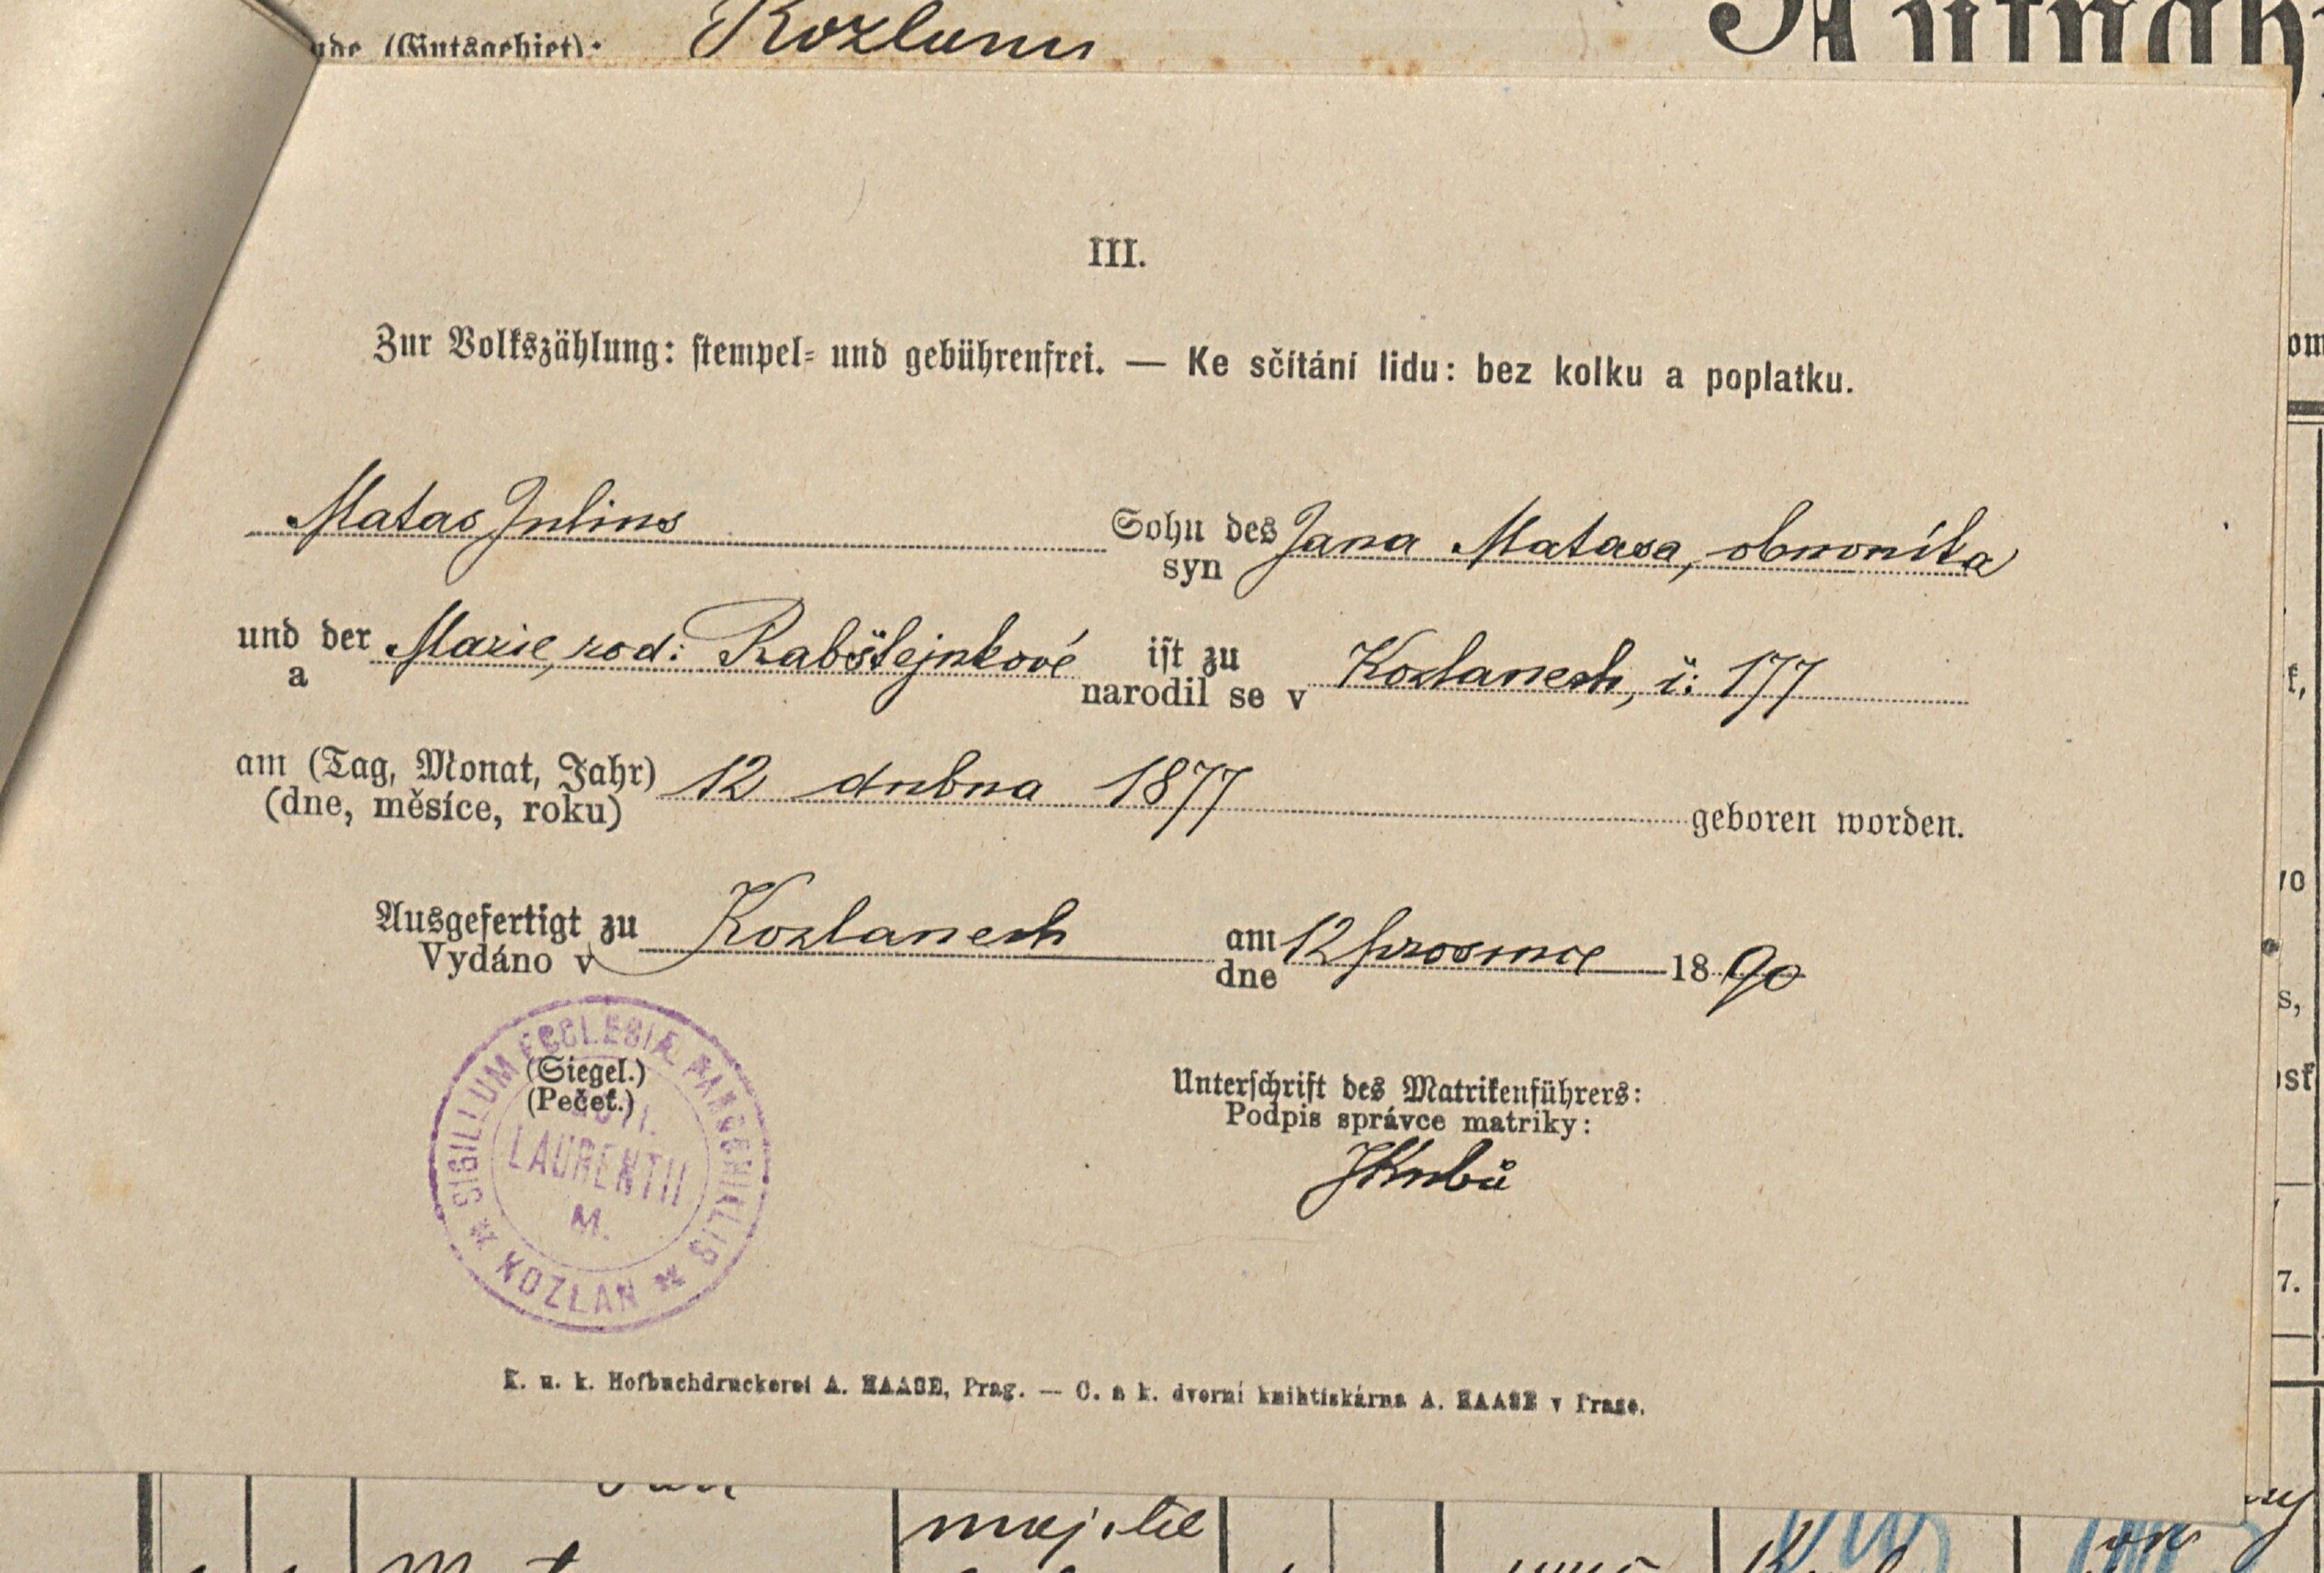 Kozlany
III.
Zur Volkszählung: stempel- und gebührenfrei. — Ke sčítání lidu: bez kolku a poplatku.
Matas Julius Sohn des Jana Matasa, obuvníka
syn
und der Marie, rod: Rabštejnkové ist zu Kozlanech, č: 177
a narodil se v
am (Tag, Monat, Jahr) 12 dubna 1877 geboren worden.
(dne, měsíce, roku)
Ausgefertigt zu Kozlanech am 12 prosince 1890
Vydáno v dne
SIGILLUM ECCLESIÆ
(Siegel.)
(Pečeť.)
LAURENTII
M.
KOZLAN
Unterschrift des Matrikenführers:
Podpis správce matriky:
JKubů
K. u. k. Hofbuchdruckerei A. HAASE, Prag. — C. a k. dvorní knihtiskárna A. HAASE v Praze.
majitel